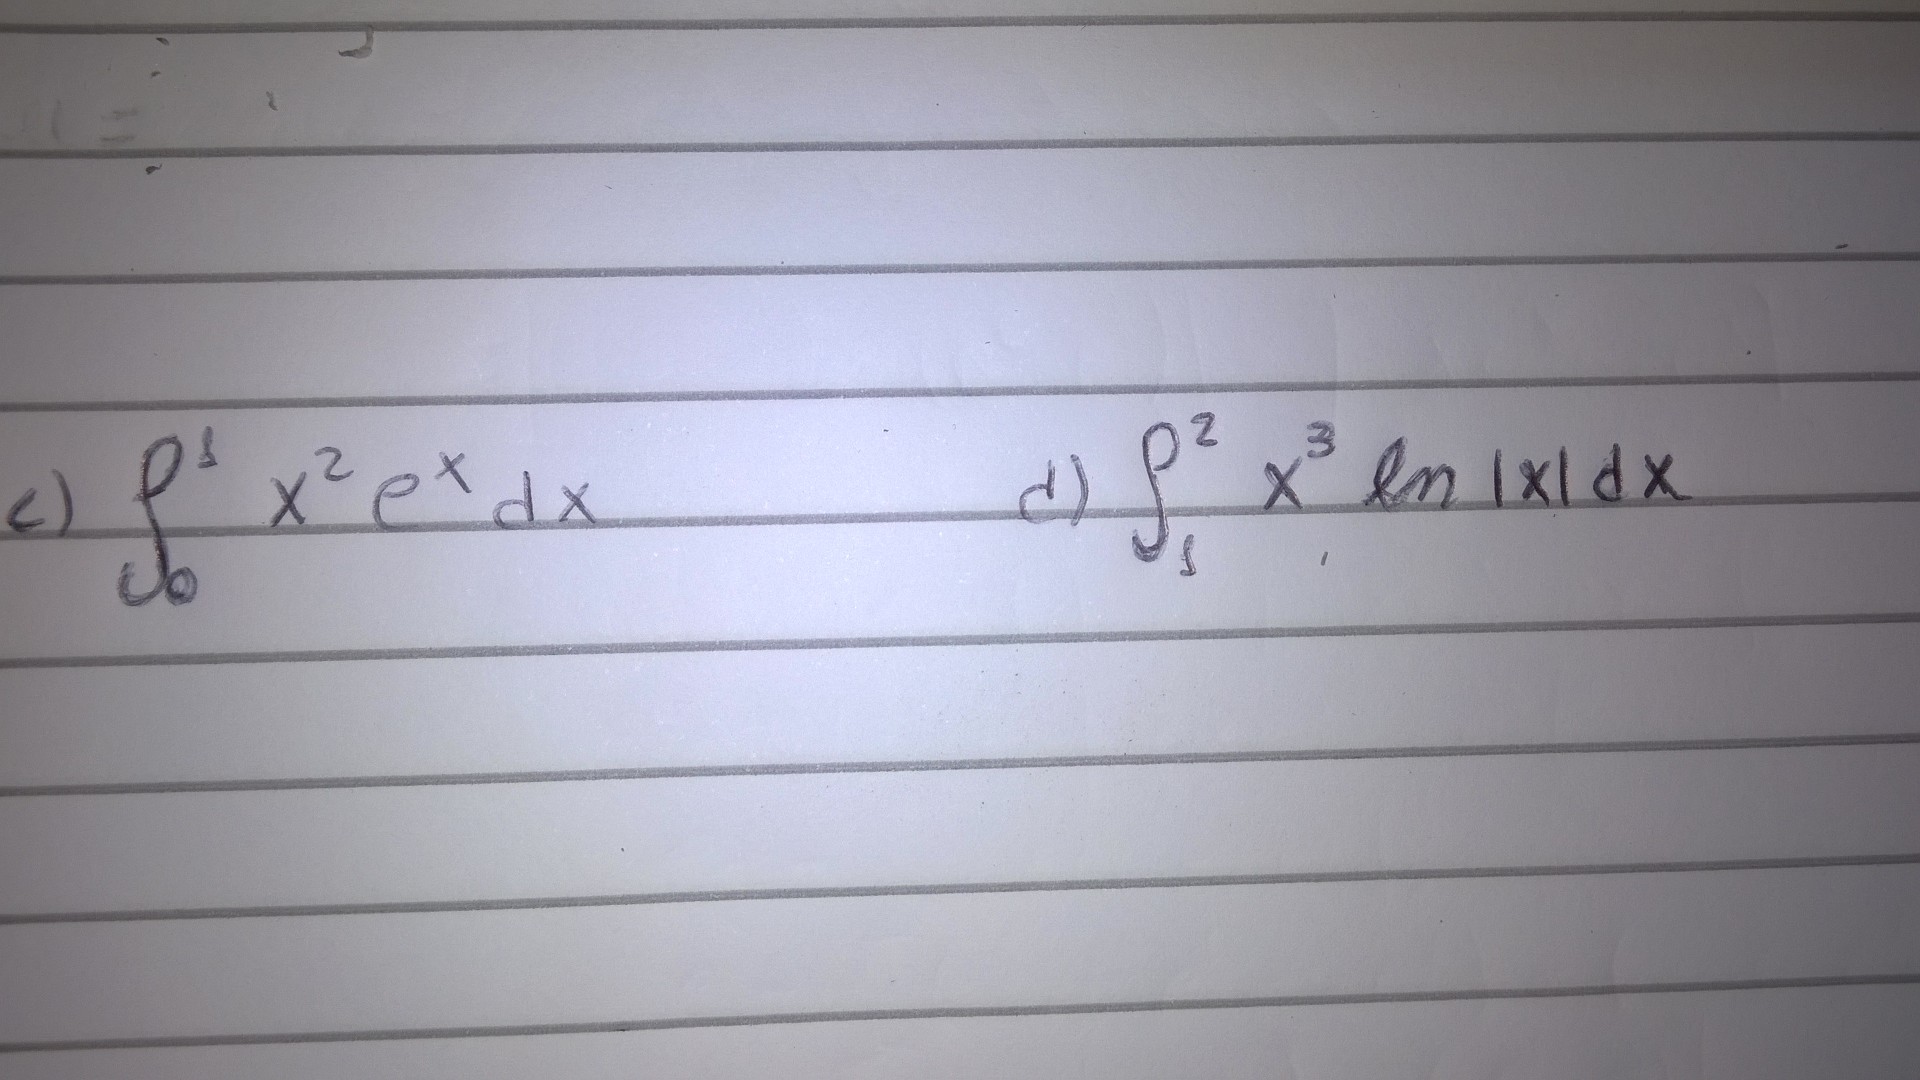 c) ∫₀¹ x² eˣ dx d) ∫₁² x³ ln |x| dx